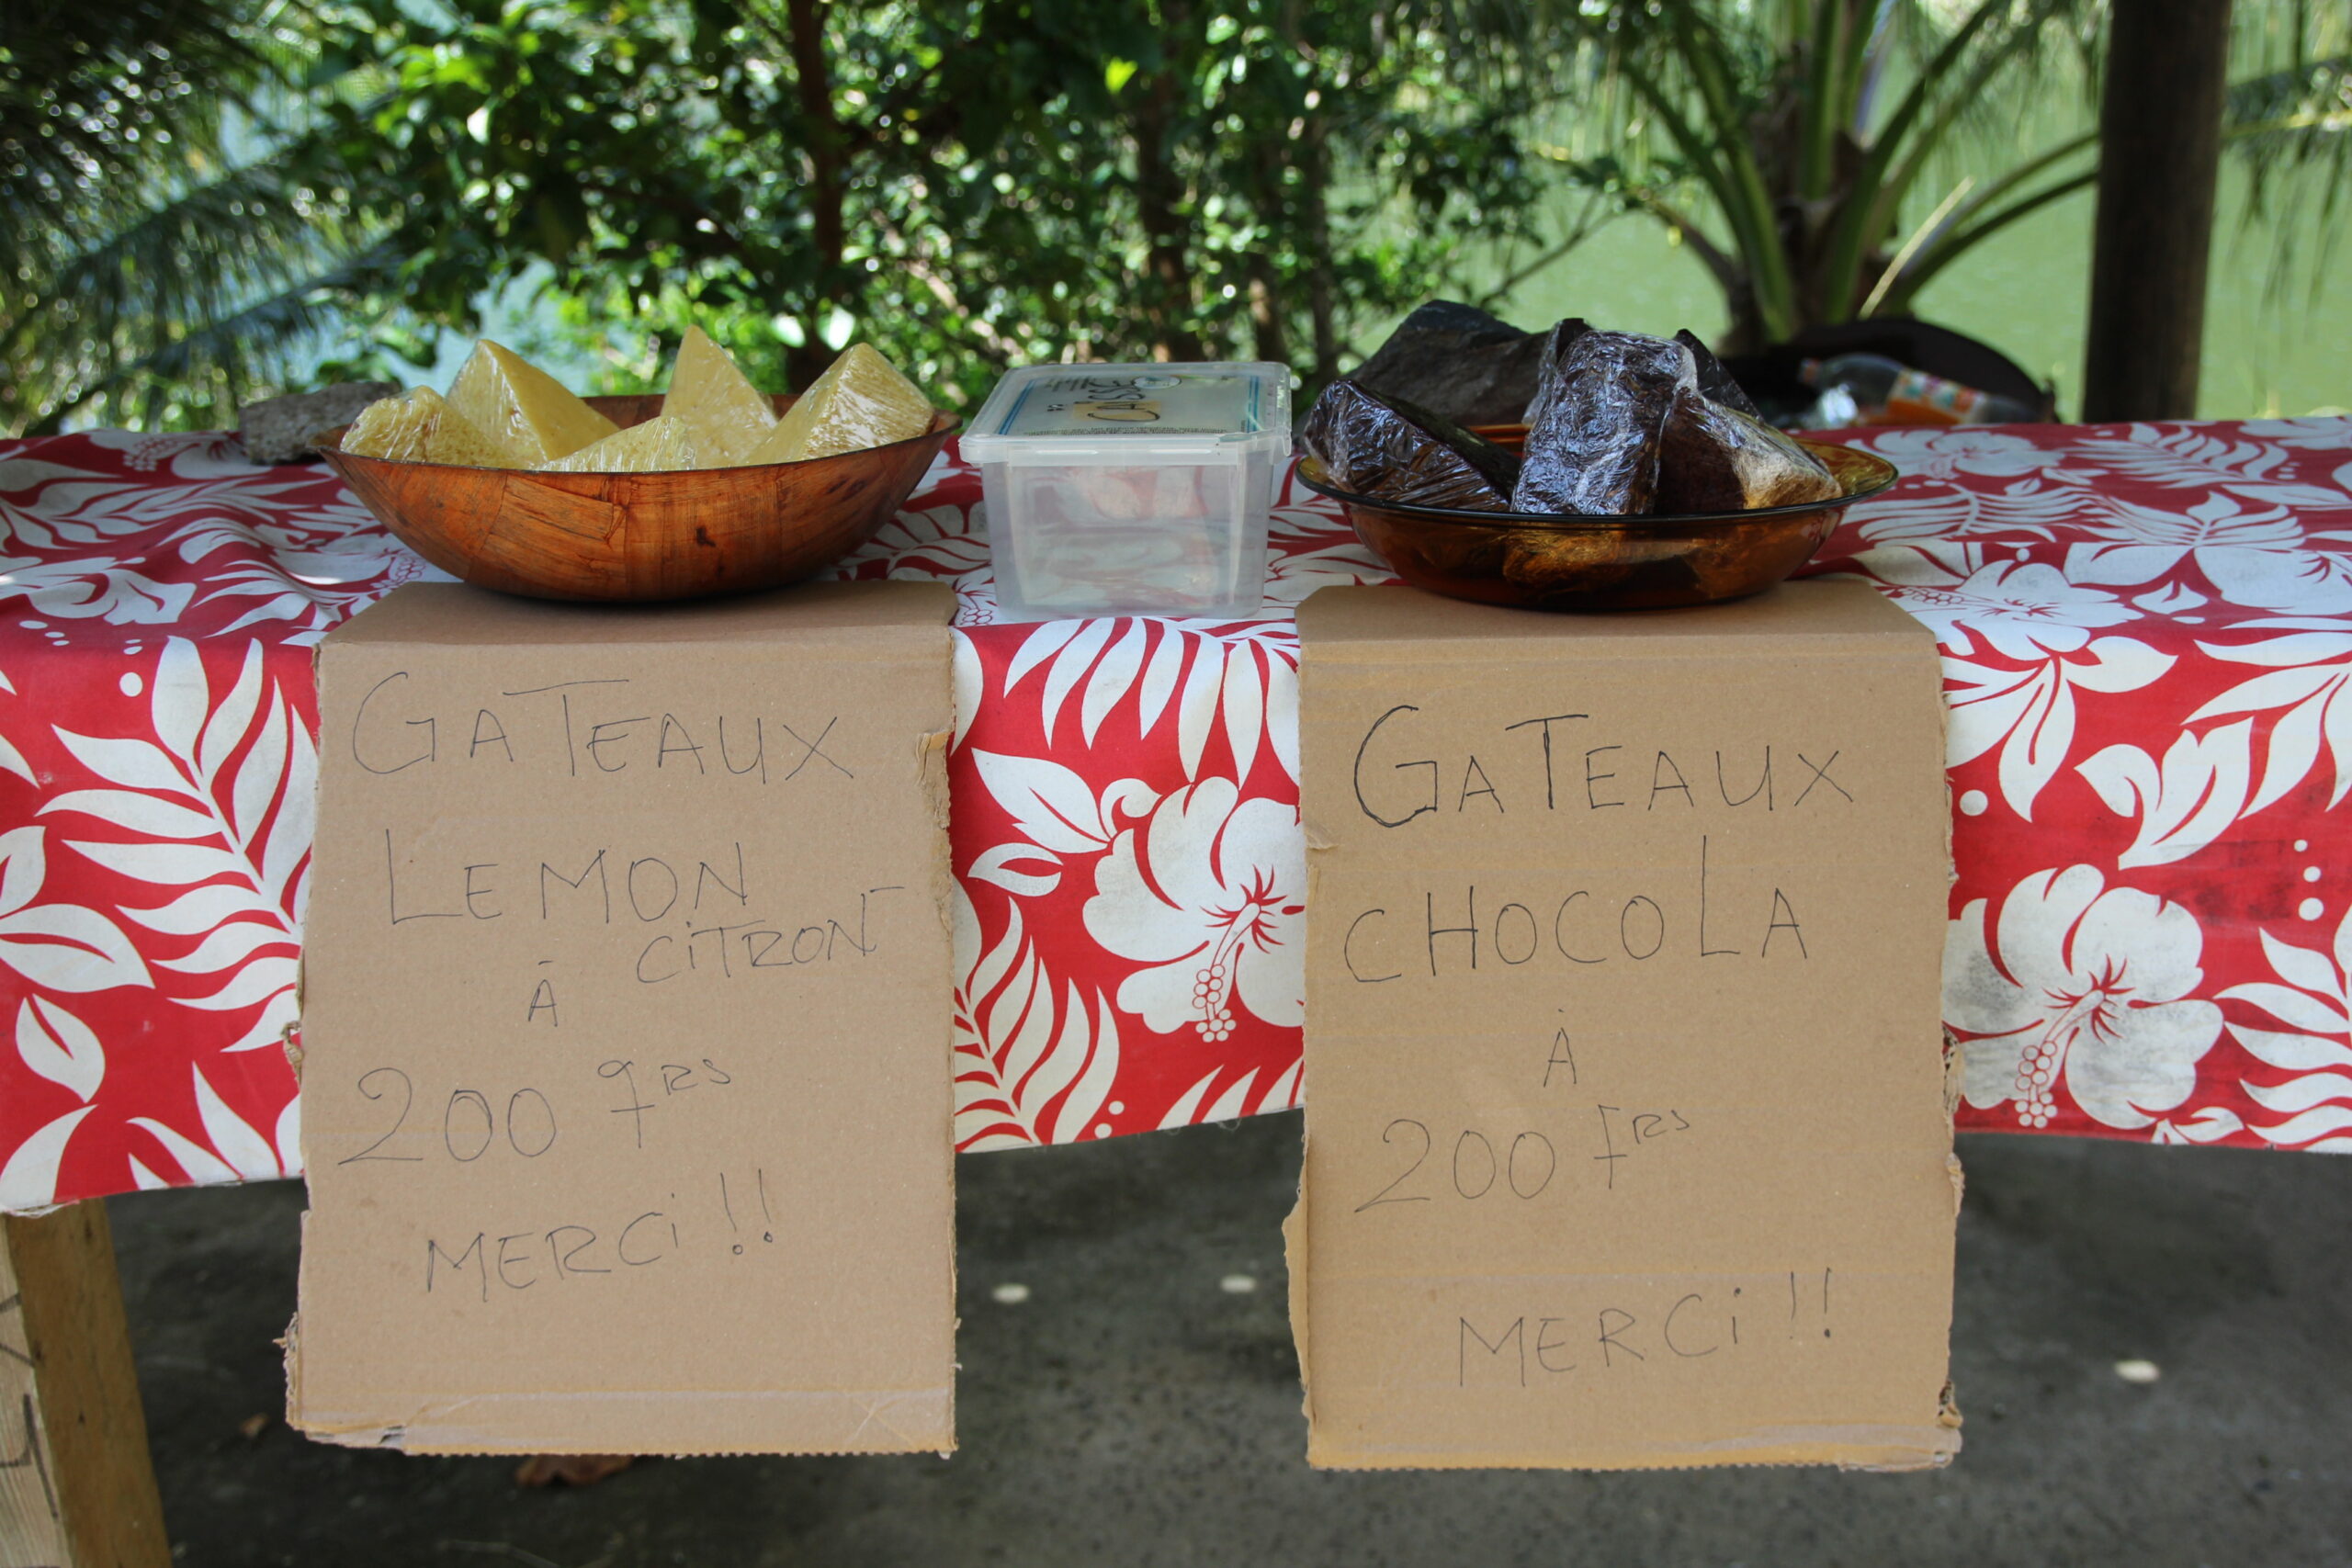 CAISSE
GATEAUX
LEMON
CITRON
À
200 Frs
MERCi !!
GATEAUX
CHOCOLA
À
200 Frs
MERCi !!